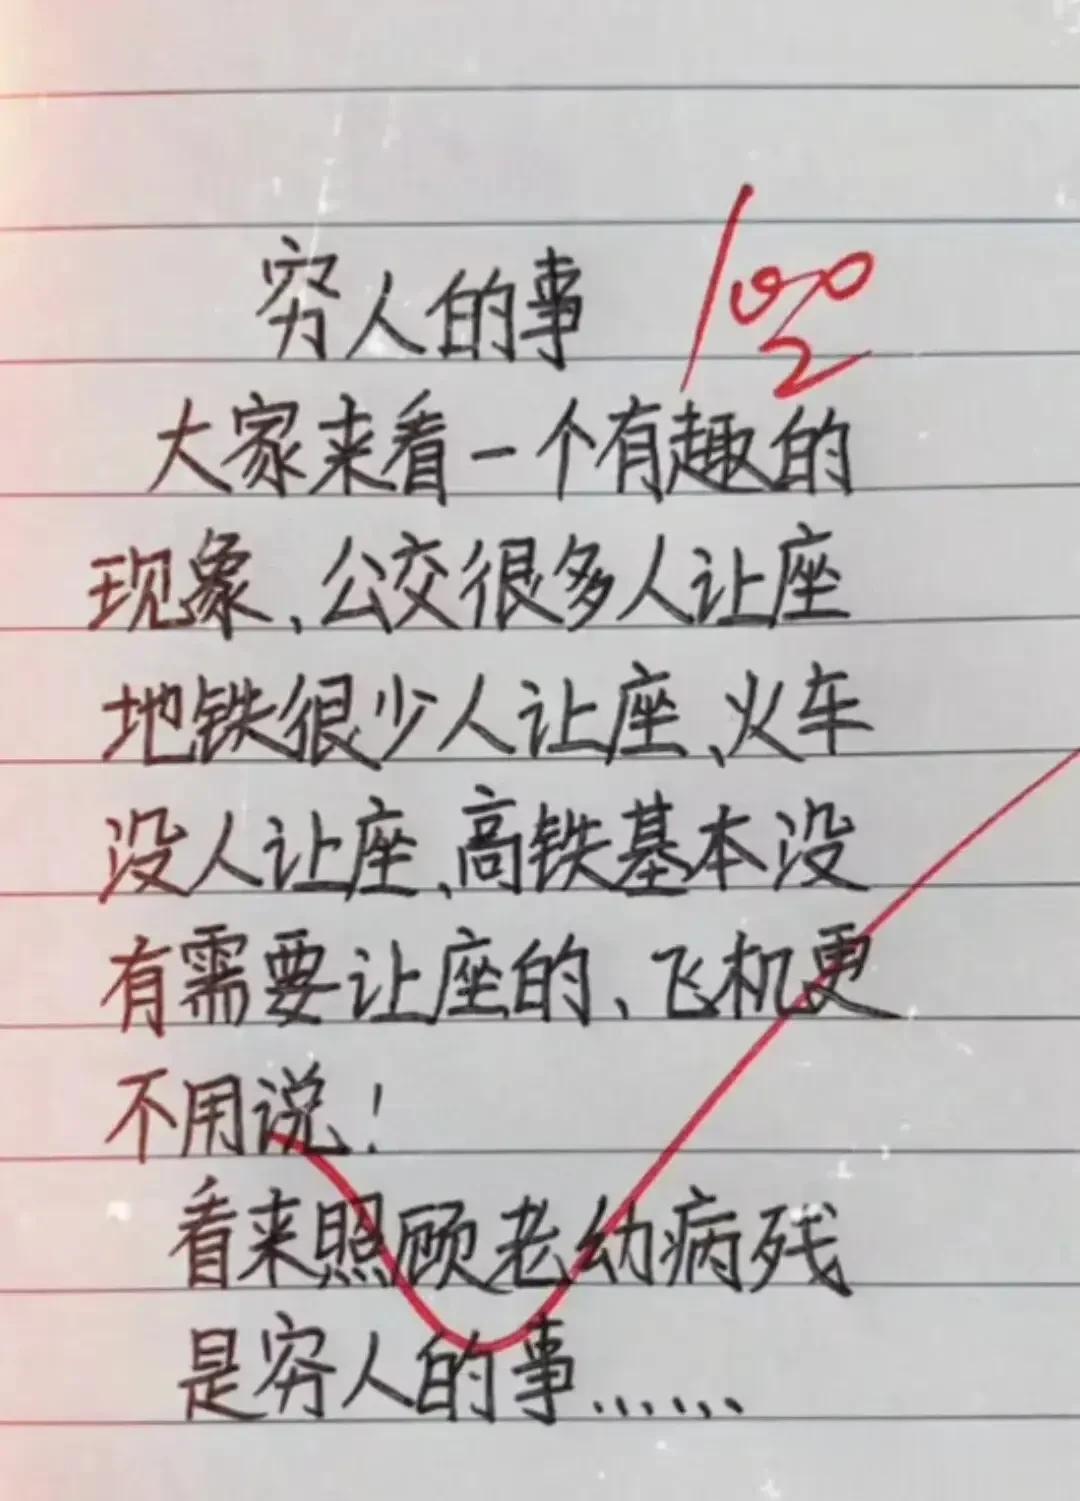 穷人的事 100
大家来看一个有趣的
现象、公交很多人让座
地铁很少人让座、火车
没人让座、高铁基本没
有需要让座的、飞机更
不用说！
看来照顾老幼病残
是穷人的事......